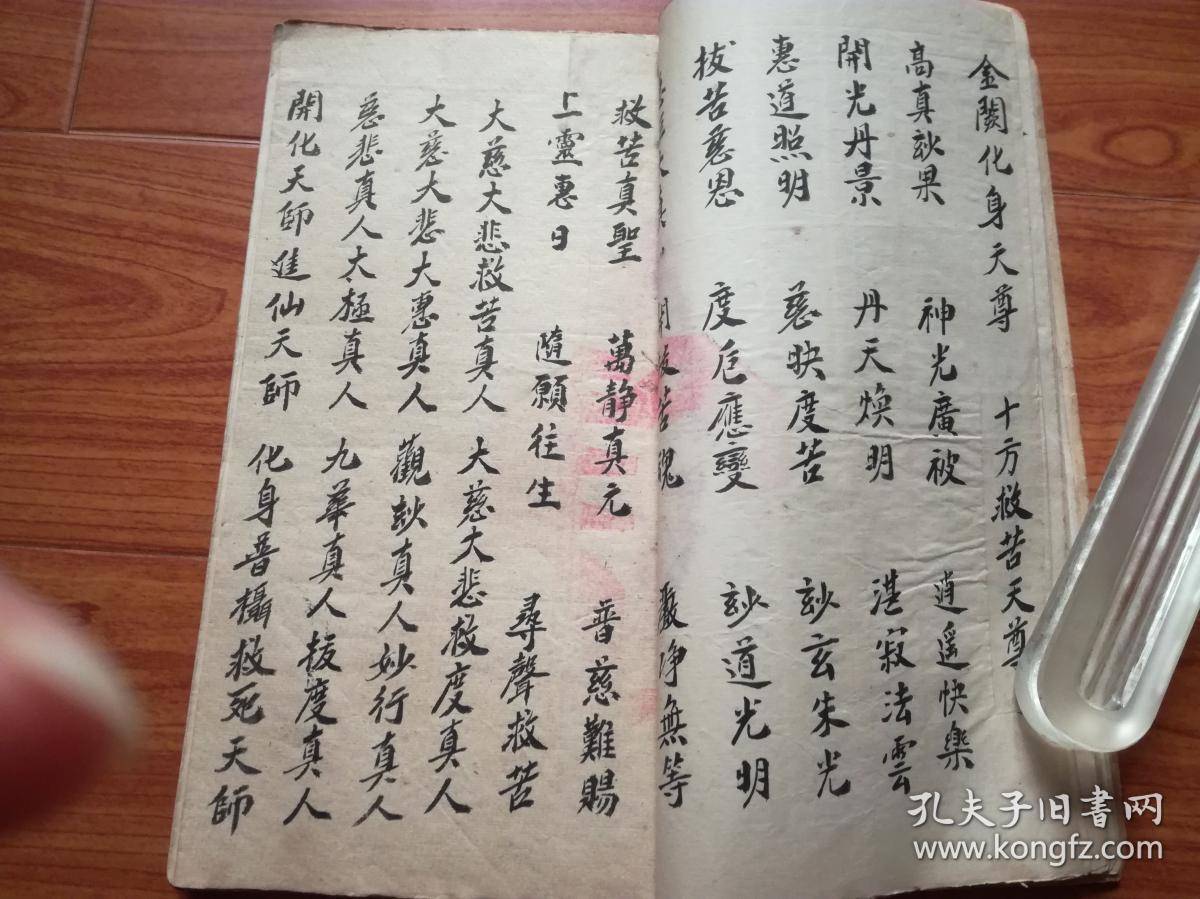 金闕化身天尊 十方救苦天尊
高真玅果 神光廣被 逍遥快樂
開光丹景 丹天煥明 湛寂法雲
惠道照明 慈映度苦 玅玄朱光
拔苦慈恩 度危應變 玅道光明
等
救苦真聖 萬静真元 普慈難賜
上靈惠日 隨願往生 尋聲救苦
大慈大悲救苦真人 大慈大悲救度真人
大慈大悲大惠真人 觀玅真人妙行真人
慈悲真人太極真人 九華真人拔度真人
開化天師進仙天師 化身普攝救死天師
孔夫子旧書网
www.kongfz.com